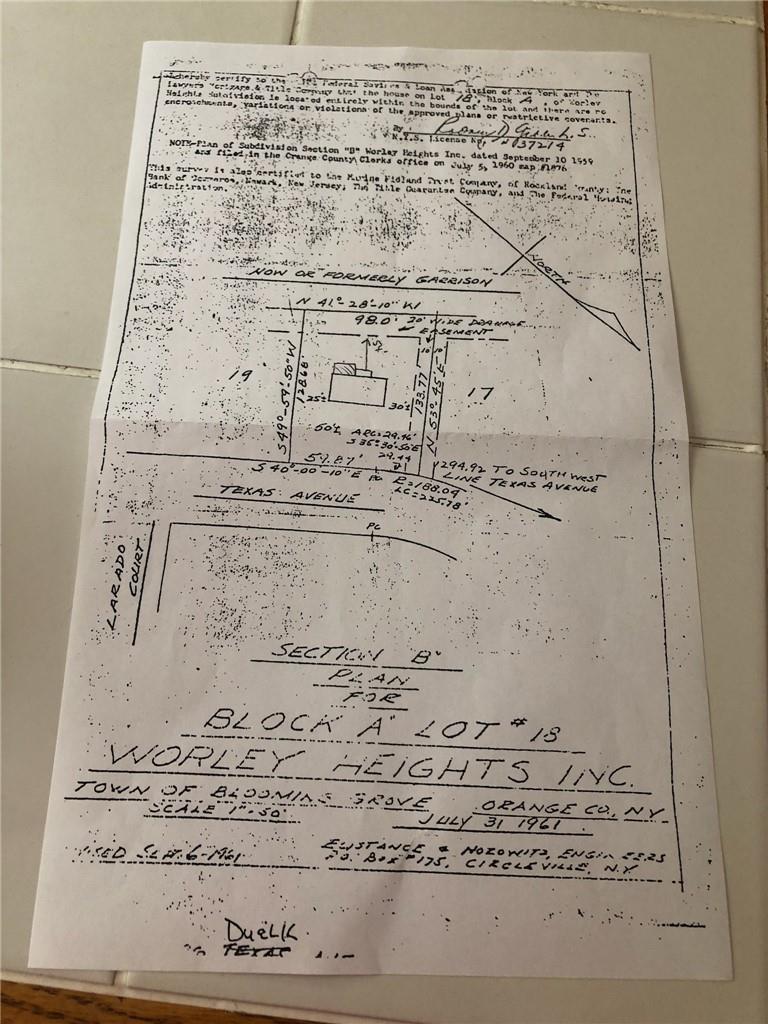 hereby certify to the Federal Savings & Loan Association of New York and The
Lawyers Mortgage & Title Company that the house on lot 18, block A, of Worley
Heights Subdivision is located entirely within the bounds of the lot and there are no
encroachments, variations or violations of the approved plans or restrictive covenants.
By:
N.Y.S. License No. 037214
NOTE-Plan of Subdivision Section "B" Worley Heights Inc. dated September 10 1959
and filed in the Orange County Clerks office on July 5, 1960 map #1876
This survey is also certified to the Marine Midland Trust Company, of Rockland County: The
Bank of Commerce, Newark, New Jersey; The Title Guarantee Company, and The Federal Housing
Administration.
NORTH
NOW OR FORMERLY GARRISON
N 41°-28'-10" W
98.0'
20' WIDE DRAINAGE
EASEMENT
10'
10'
19
S 49°-59'-50" W
128.68'
25'±
30'±
133.77
N 53°-45' E
17
60'±
ARC=29.46'
S 35°-30'-50"E
29.44
59.87'
S 40°-00'-10" E
PC
R=188.04
LC=225.78'
294.92 TO SOUTHWEST
LINE TEXAS AVENUE
TEXAS AVENUE
PC
LARADO
COURT
SECTION "B"
PLAN
FOR
BLOCK "A" LOT #18
WORLEY HEIGHTS INC.
TOWN OF BLOOMING GROVE ORANGE CO., N.Y.
SCALE 1"=50'
JULY 31 1961
SEPT. 6-1961
EUSTANCE & HOROWITZ, ENGINEERS
P.O. BOX #175, CIRCLEVILLE, N.Y.
TEXAS